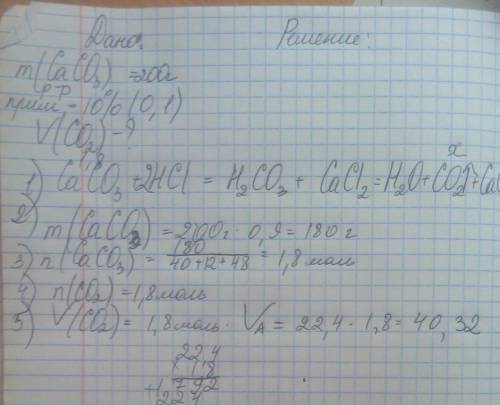 Дано: Решение:
m(CaCO₃) = 200г
р-р
прим - 10% (0,1)
V(CO₂) - ?
1,8 x
1) CaCO₃ + 2HCl = H₂CO₃ + CaCl₂ = H₂O + CO₂↑ + Ca
2) m(CaCO₃) = 200г · 0,9 = 180 г
3) n(CaCO₃) = 180 / 40+12+48 = 1,8 моль
4) n(CO₂) = 1,8 моль
5) V(CO₂) = 1,8 моль · VA = 22,4 · 1,8 = 40,32
22,4
× 1,8
+ 1792
224